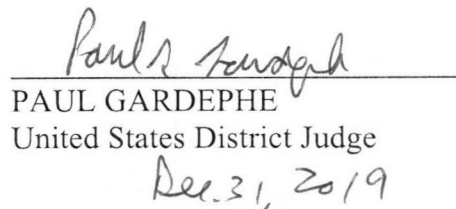 Paul G Gardephe
PAUL GARDEPHE
United States District Judge
Dec. 31, 2019